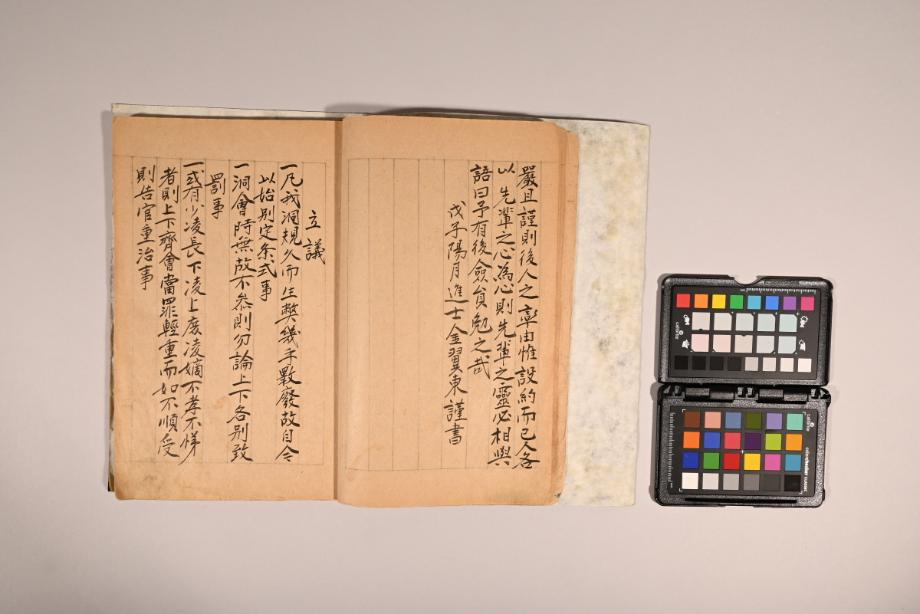 嚴且謹則後人之率由惟設約而已人各
以先輩之心為心則先輩之靈必相與
語曰予有後僉員勉之哉
戊子陽月進士金翼東謹書
立議
一凡我洞規久而生弊幾乎斁廢故自今
以始別定条式事
一洞會時無故不參則勿論上下各別致
罰事
一或有少凌長下凌上庶凌嫡不孝不悌
者則上下齊會當罪輕重而如不順受
則告官重治事